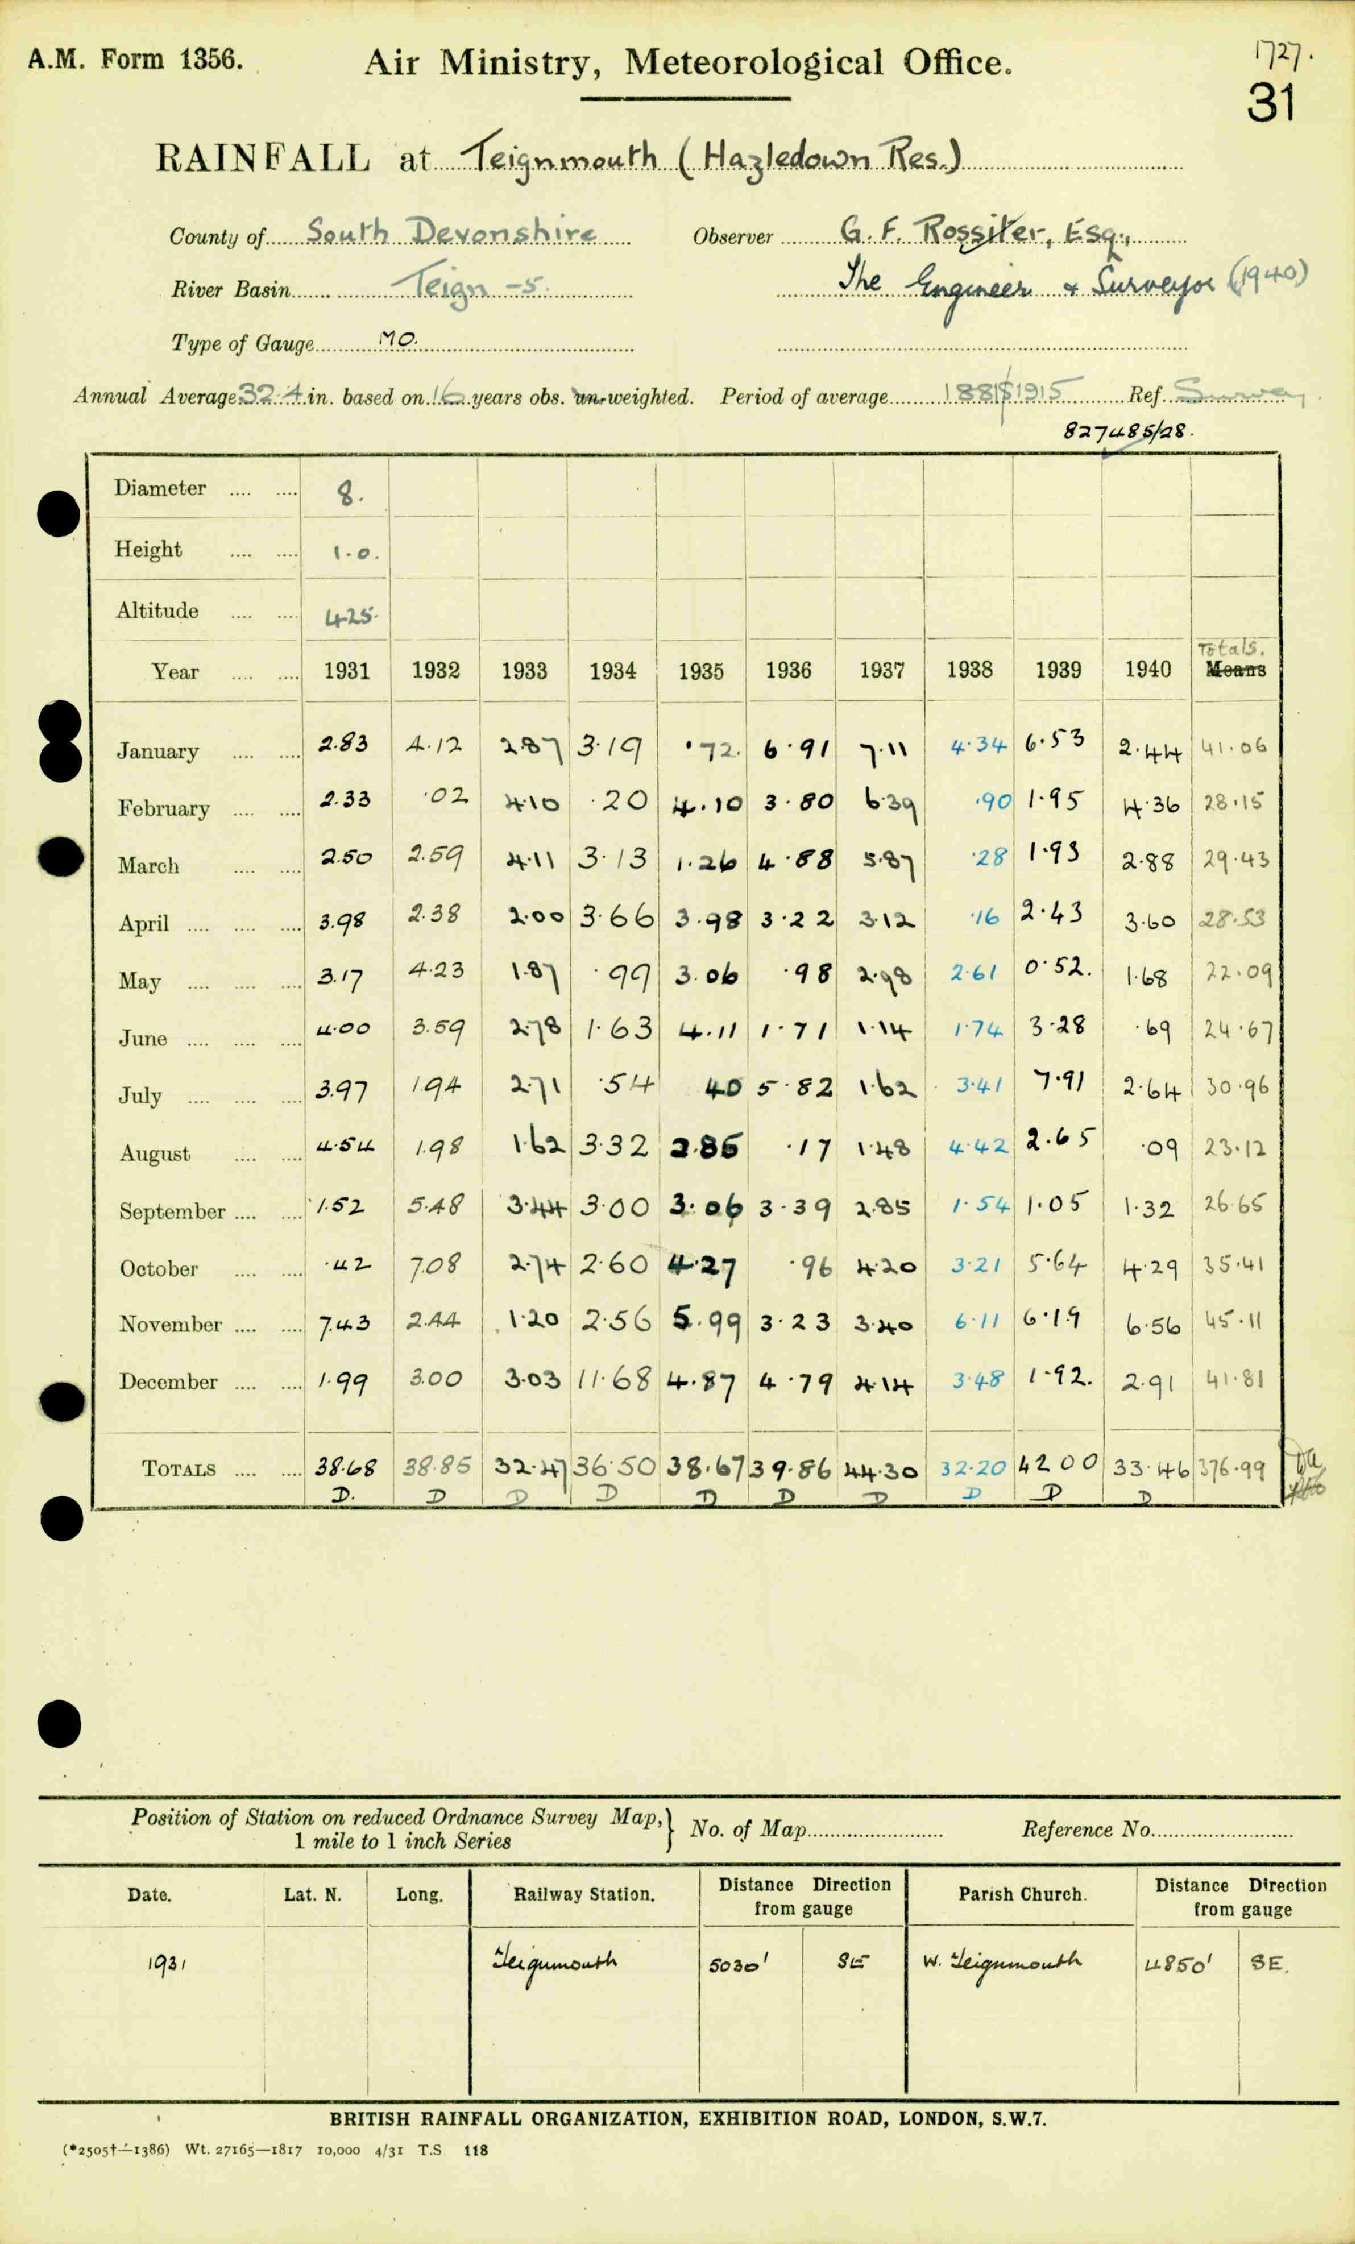 A.M. Form 1356. Air Ministry, Meteorological Office. 1727.
31
RAINFALL at Teignmouth (Hazledown Res.)
County of South Devonshire Observer G. F. Rossiter, Esq.,
River Basin Teign -5. The Engineer & Surveyor (1940)
Type of Gauge MO.
Annual Average 32.4 in. based on 16 years obs. un-weighted. Period of average 1881-1915 Ref. Survey
827485/28.
Diameter .... .... 8.
Height .... .... 1.0.
Altitude .... .... 425.
Totals.
Year .... .... 1931 1932 1933 1934 1935 1936 1937 1938 1939 1940 Means
January .... .... 2.83 4.12 2.87 3.19 .72 6.91 7.11 4.34 6.53 2.44 41.06
February .... .... 2.33 .02 4.10 .20 4.10 3.80 6.39 .90 1.95 4.36 28.15
March .... .... 2.50 2.59 4.11 3.13 1.26 4.88 5.87 .28 1.93 2.88 29.43
April .... .... .... 3.98 2.38 2.00 3.66 3.98 3.22 3.12 .16 2.43 3.60 28.53
May .... .... .... 3.17 4.23 1.87 .99 3.06 .98 2.98 2.61 0.52. 1.68 22.09
June .... .... .... 4.00 3.59 2.78 1.63 4.11 1.71 1.14 1.74 3.28 .69 24.67
July .... .... .... 3.97 1.94 2.71 .54 40 5.82 1.62 3.41 7.91 2.64 30.96
August .... .... 4.54 1.98 1.62 3.32 2.85 .17 1.48 4.42 2.65 .09 23.12
September .... .... 1.52 5.48 3.44 3.00 3.06 3.39 2.85 1.54 1.05 1.32 26.65
October .... .... .42 7.08 2.74 2.60 4.27 .96 4.20 3.21 5.64 4.29 35.41
November .... .... 7.43 2.44 1.20 2.56 5.99 3.23 3.40 6.11 6.19 6.56 45.11
December .... .... 1.99 3.00 3.03 11.68 4.87 4.79 4.14 3.48 1.92. 2.91 41.81
TOTALS .... .... 38.68 38.85 32.47 36.50 38.67 39.86 44.30 32.20 42 00 33.46 376.99
D. D D D D D D D D D
Position of Station on reduced Ordnance Survey Map, } No. of Map Reference No.
1 mile to 1 inch Series
Date. Lat. N. Long. Railway Station. Distance Direction from gauge Parish Church. Distance Direction from gauge
1931 Teignmouth 5030' SE W. Teignmouth 4850' SE.
BRITISH RAINFALL ORGANIZATION, EXHIBITION ROAD, LONDON, S.W.7.
(*2505†—1386) Wt. 27165—1817 10,000 4/31 T.S 118